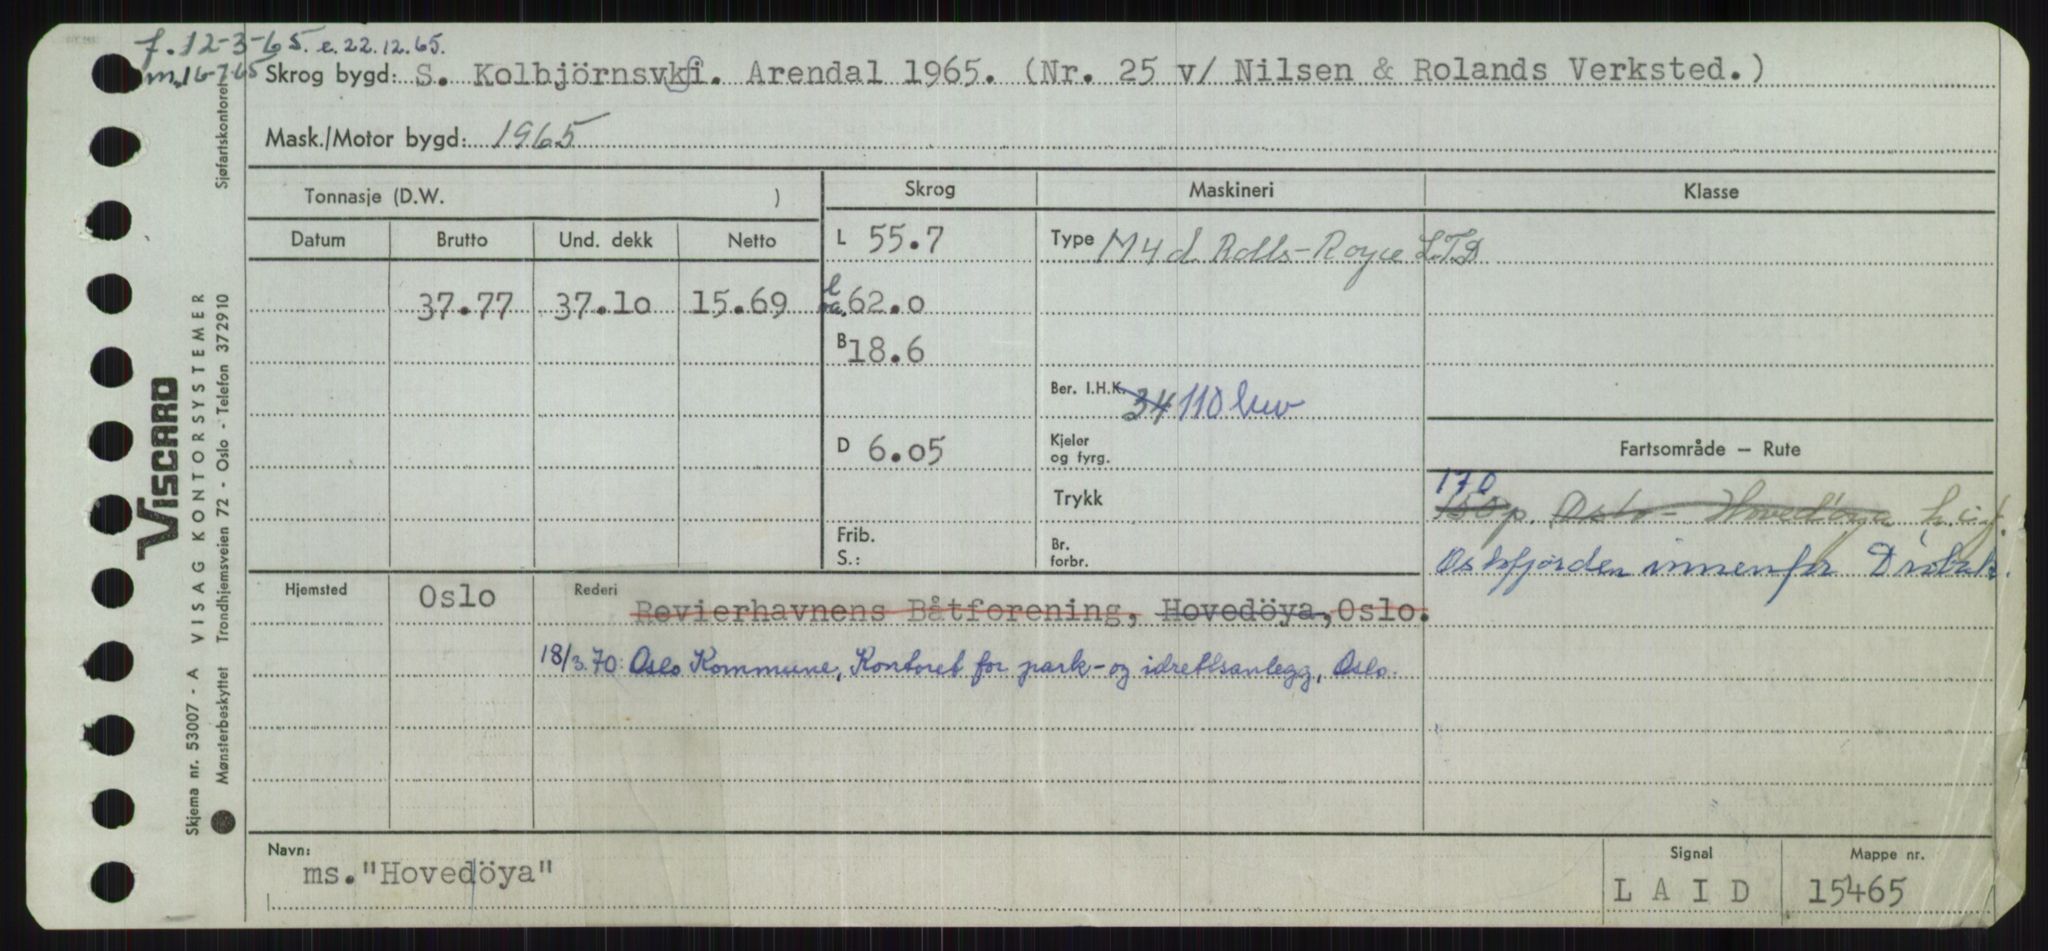 f. 12-3-65. e. 22.12.65.
m. 16-7-65 Skrog bygd: S. Kolbjörnsvki. Arendal 1965. (Nr. 25 v/ Nilsen & Rolands Verksted.)
Mask./Motor bygd: 1965
Tonnasje (D.W. ) Skrog Maskineri Klasse
Datum Brutto Und. dekk Netto L 55.7 Type M4d Rolls-Royce LTD
37.77 37.10 15.69 l oa. 62.0
B 18.6
Ber. I.H.K. 34 110 bhv
D 6.05 Kjeler og fyrg. Fartsområde — Rute
Trykk 170
150 p. Oslo - Hovedöya h.i.f.
Frib. S.: Br. forbr. Oslofjorden innenfor Drøbak.
Hjemsted Oslo Rederi Revierhavnens Båtforening, Hovedöya, Oslo.
18/3.70: Oslo Kommune, Kontoret for park- og idrettsanlegg, Oslo.
Navn: Signal Mappe nr.
ms. "Hovedöya" LAID 15465
Sjøfartskontoret
VISCARD
VISAG KONTORSYSTEMER
Trondhjemsveien 72 - Oslo - Telefon 372910
Skjema nr. 53007 - A
Mønsterbeskyttet